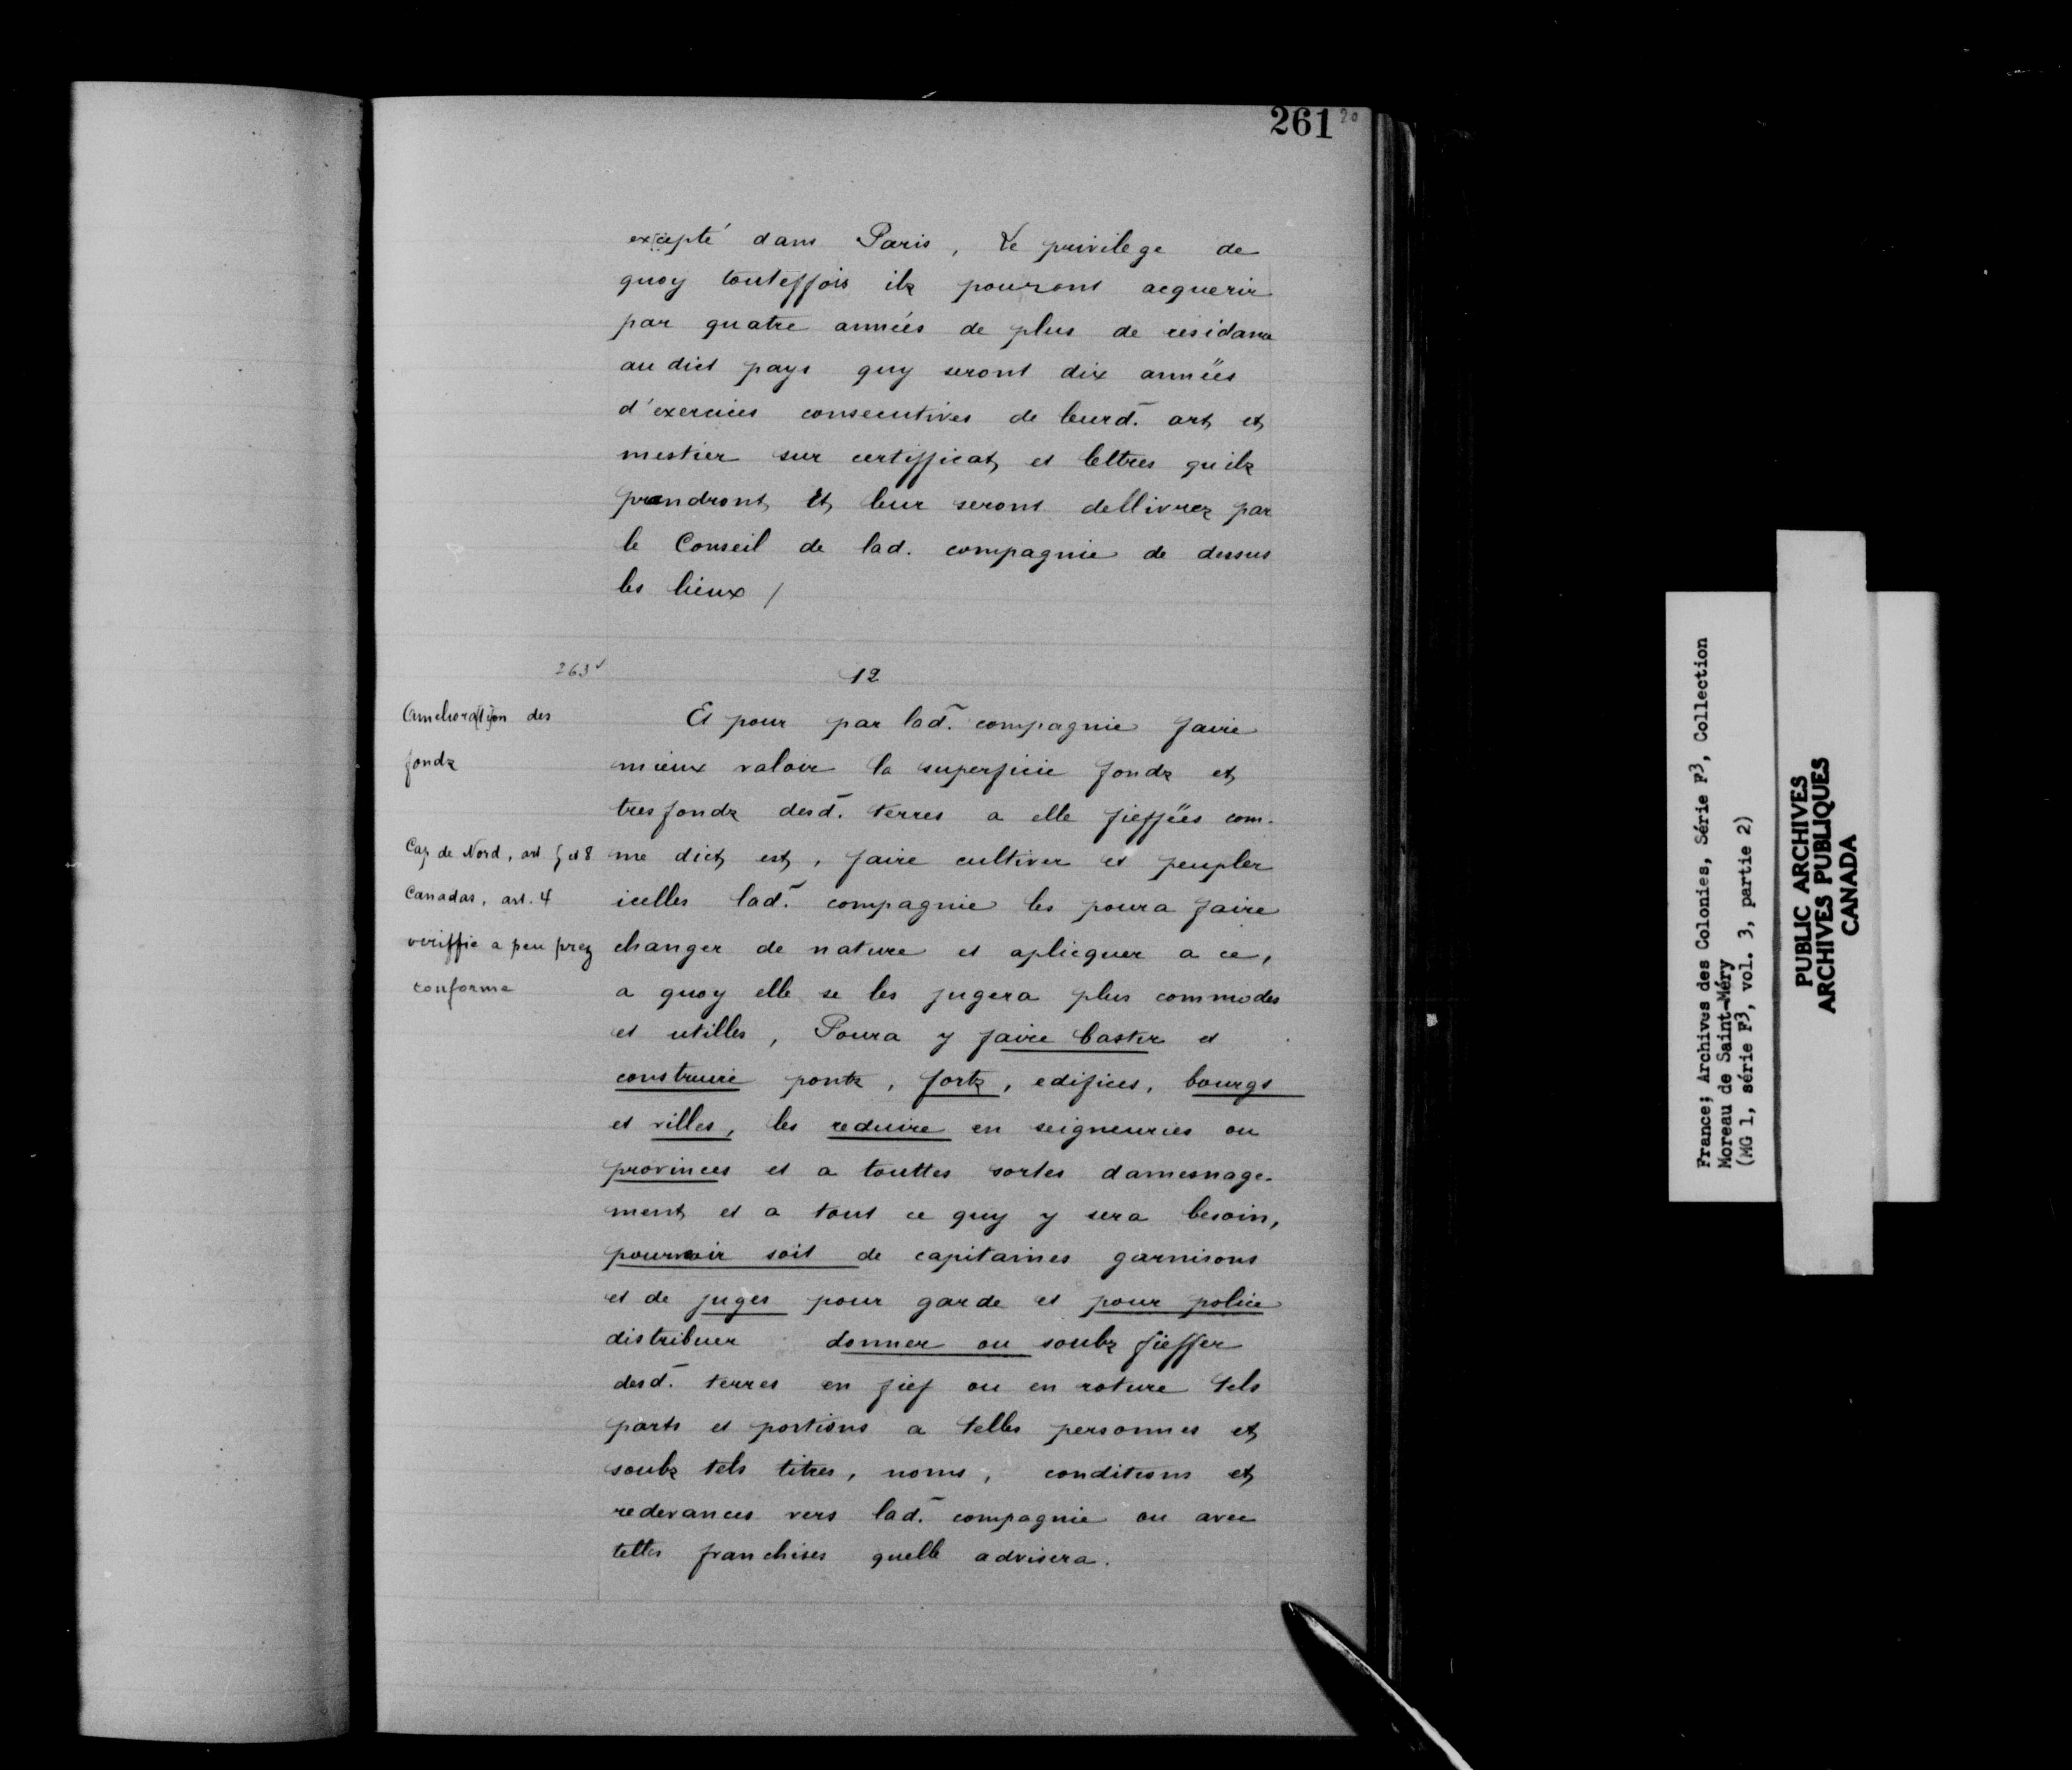 261 20
excepté dans Paris, Le privilege de
quoy touteffois ilz pouront acquerir
par quatre années de plus de residance
au dict pays quy seront dix années
d'exercices consecutives de leurd. art et
mestier sur certifficat et lettres quilz
prandront Et leur seront dellivrez par
le Conseil de lad. compagnie de dessus
les lieux /
263v
12
Amelioration des
fondz
Cap de Nord, art et 8
Canadas, art. 4
veriffie a peu prez
conforme
Et pour par lad. compagnie faire
mieux valoir la superficie fondz et
tresfondz desd. terres a elle fieffées com-
me dict est, faire cultiver et peupler
icelles lad. compagnie les poura faire
changer de nature et aplicquer a ce,
a quoy elle se les jugera plus commodes
et utilles, Poura y faire bastir et
construire pontz, fortz, edifices, bourgs
et villes, les reduire en seigneuries ou
provinces et a touttes sortes damesnage-
ment et a tout ce quy y sera besoin,
pourvoir soit de capitaines garnisons
et de juges pour garde et pour police
distribuer donner ou soubz fieffer
desd. terres en fief ou en roture tels
parts et portions a telles personnes et
soubz tels titres, noms, conditions et
redevances vers lad. compagnie ou avec
telles franchises quelle advisera.
France; Archives des Colonies, Série F3, Collection
Moreau de Saint-Méry
(MG 1, série F3, vol. 3, partie 2)
PUBLIC ARCHIVES
ARCHIVES PUBLIQUES
CANADA